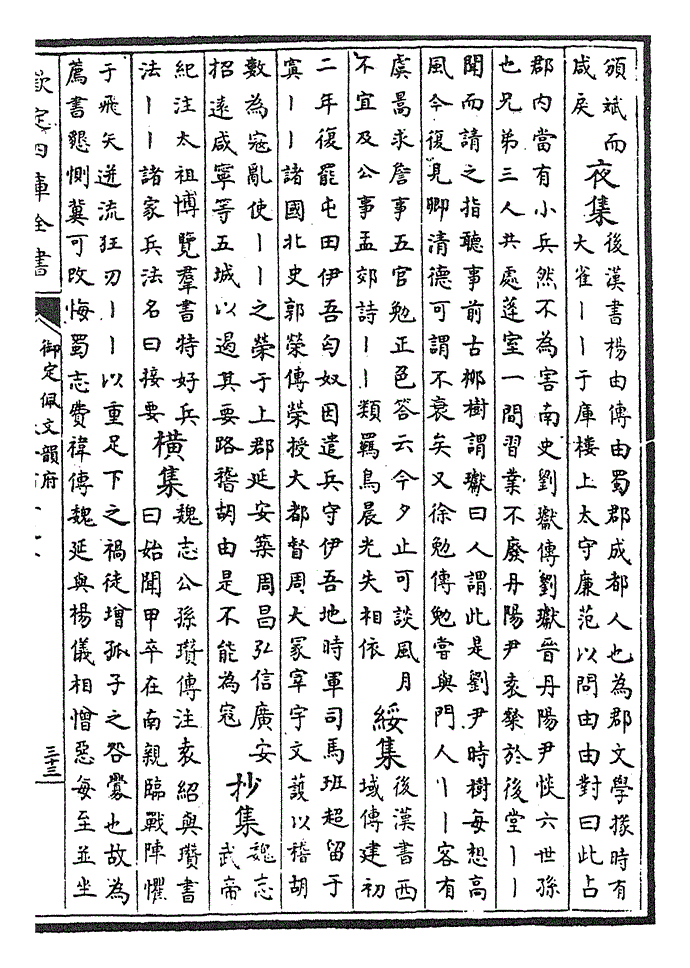 頒斌而
咸戾
夜集
後漢書楊由傳由蜀郡成都人也為郡文學掾時有
大雀丨丨于庫樓上太守廉范以問由由對曰此占
郡内當有小兵然不為害南史劉瓛傳劉瓛晋丹陽尹惔六世孫
也兄弟三人共處蓬室一間習業不廢丹陽尹袁粲於後堂丨丨
聞而請之指聽事前古栁樹謂瓛曰人謂此是劉尹時樹每想高
風今復見卿清德可謂不衰矣又徐勉傳勉嘗與門人丨丨客有
虞暠求詹事五官勉正色答云今夕止可談風月
不宜及公事孟郊詩丨丨類羈鳥晨光失相依
綏集
後漢書西
域傳建初
二年復罷屯田伊吾匈奴因遣兵守伊吾地時軍司馬班超留于
寘丨丨諸國北史郭榮傳榮授大都督周大冢宰宇文䕶以稽胡
數為寇亂使丨丨之榮于上郡延安築周昌弘信廣安
招遠咸寧等五城以遏其要路稽胡由是不能為寇
抄集
魏志
武帝
紀注太祖博覽羣書特好兵
法丨丨諸家兵法名曰接要
横集
魏志公孫瓚傳注袁紹與瓚書
曰始聞甲卒在南親臨戰陣懼
于飛矢迸流狂刃丨丨以重足下之禍徒增孤子之咎釁也故為
薦書懇惻冀可改悔蜀志費禕傳魏延與楊儀相憎惡每至並坐
欽定四庫全書
御定佩文韻府
三十三